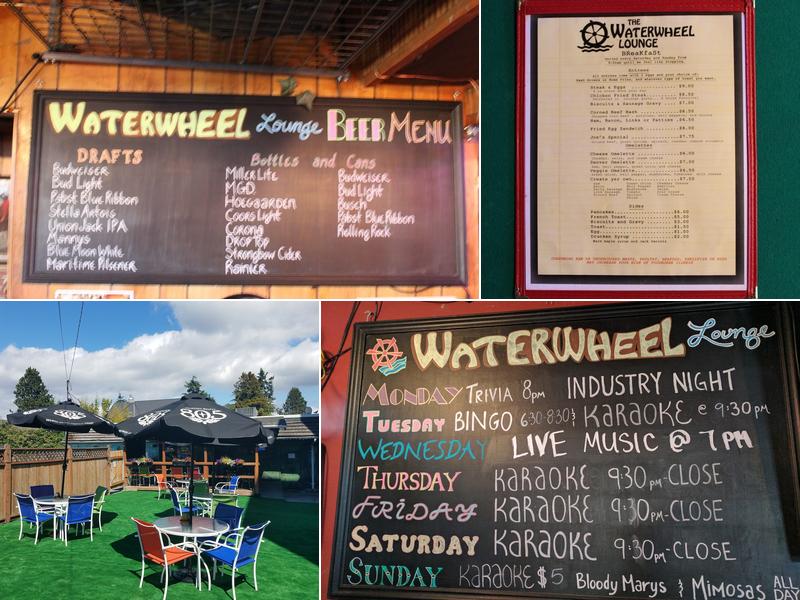 WATERWHEEL Lounge BEER MENU
DRAFTS
Budweiser
Bud Light
Pabst Blue Ribbon
Stella Artois
Union Jack IPA
Mannys
Blue Moon White
Maritime Pilsener
Bottles and Cans
Miller Lite
MGD
Hoegaarden
Coors Light
Corona
Drop Top
Strongbow Cider
Rainier
Budweiser
Bud Light
Busch
Pabst Blue Ribbon
Rolling Rock
THE
WATERWHEEL
LOUNGE
BReaKfaSt
Entrees
Steak & Eggs $9.00
Chicken Fried Steak $8.50
Biscuits & Sausage Gravy $7.00
Corned Beef Hash $6.50
Ham, Bacon, Links or Patties $6.50
Fried Egg Sandwich $6.00
Joe's Special $7.75
Omelettes
Cheese Omelette $6.50
Denver Omelette $7.00
Veggie Omelette $6.50
Create your own $7.00
Sides
Pancakes $4.00
French Toast $5.00
Biscuits and Gravy $3.00
Toast $1.50
Egg $1.00
Drunken Syrup $2.00
805
805
WATERWHEEL Lounge
MONDAY TRIVIA 8pm INDUSTRY NIGHT
TUESDAY BINGO 630-830 & KARAOKE @ 9:30pm
WEDNESDAY LIVE MUSIC @ 7PM
THURSDAY KARAOKE 9:30pm-CLOSE
FRIDAY KARAOKE 9:30pm-CLOSE
SATURDAY KARAOKE 9:30pm-CLOSE
SUNDAY KARAOKE $5 Bloody Marys & Mimosas ALL DAY